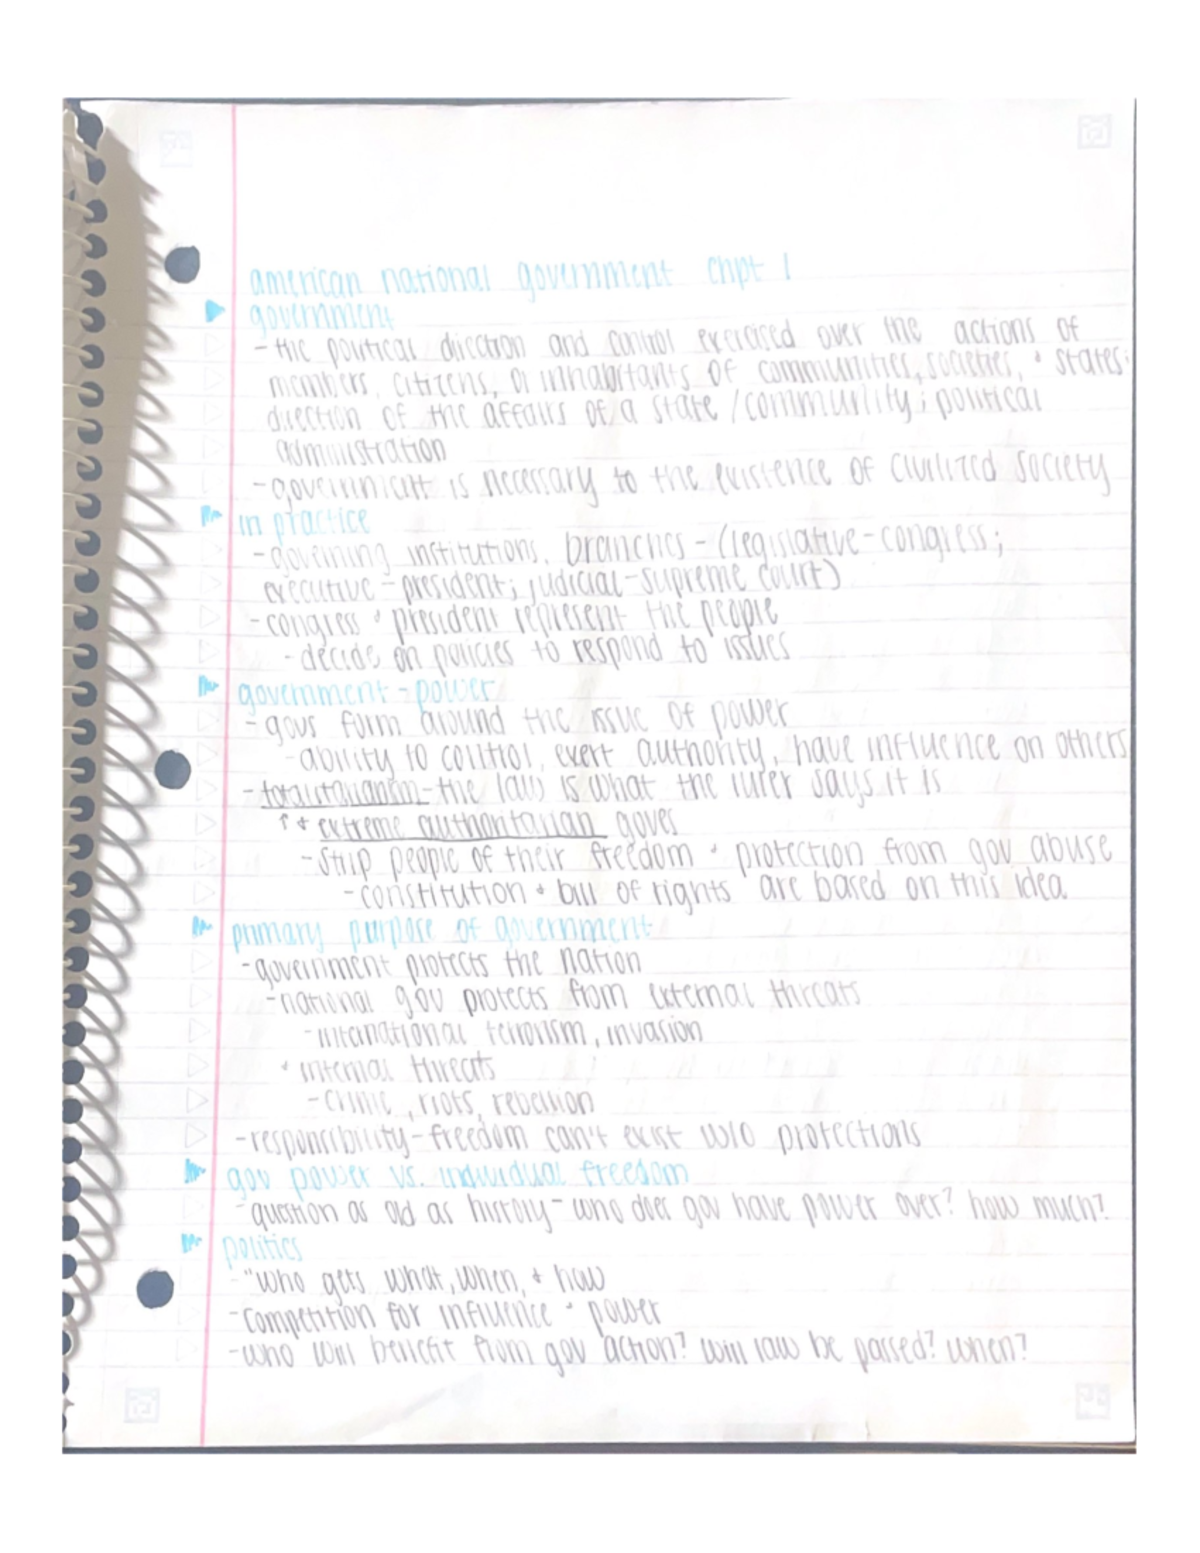 american national government chpt 1
government
- the political direction and control exercised over the actions of
members, citizens, or inhabitants of communities, societies, + states;
direction of the affairs of a state / community; political
administration
- government is necessary to the existence of civilized society
in practice
- governing institutions, branches - (legislative - congress;
executive - president; judicial - supreme court)
- congress + president represent the people
- decide on policies to respond to issues
government - power
- govs form around the issue of power
- ability to control, exert authority, have influence on others
- totalitarianism - the law is what the ruler says it is
↑ + extreme authoritarian goves
- strip people of their freedom + protection from gov abuse
- constitution + bill of rights are based on this idea.
primary purpose of government
- government protects the nation
- national gov protects from external threats
- international terrorism, invasion
+ internal threats
- crime, riots, rebellion
- responsibility - freedom can't exist w/o protections
gov power vs. individual freedom
- question as old as history - who does gov have power over? how much?
politics
- "who gets what, when, + how
- competition for influence + power
- who will benefit from gov action? will law be passed? when?